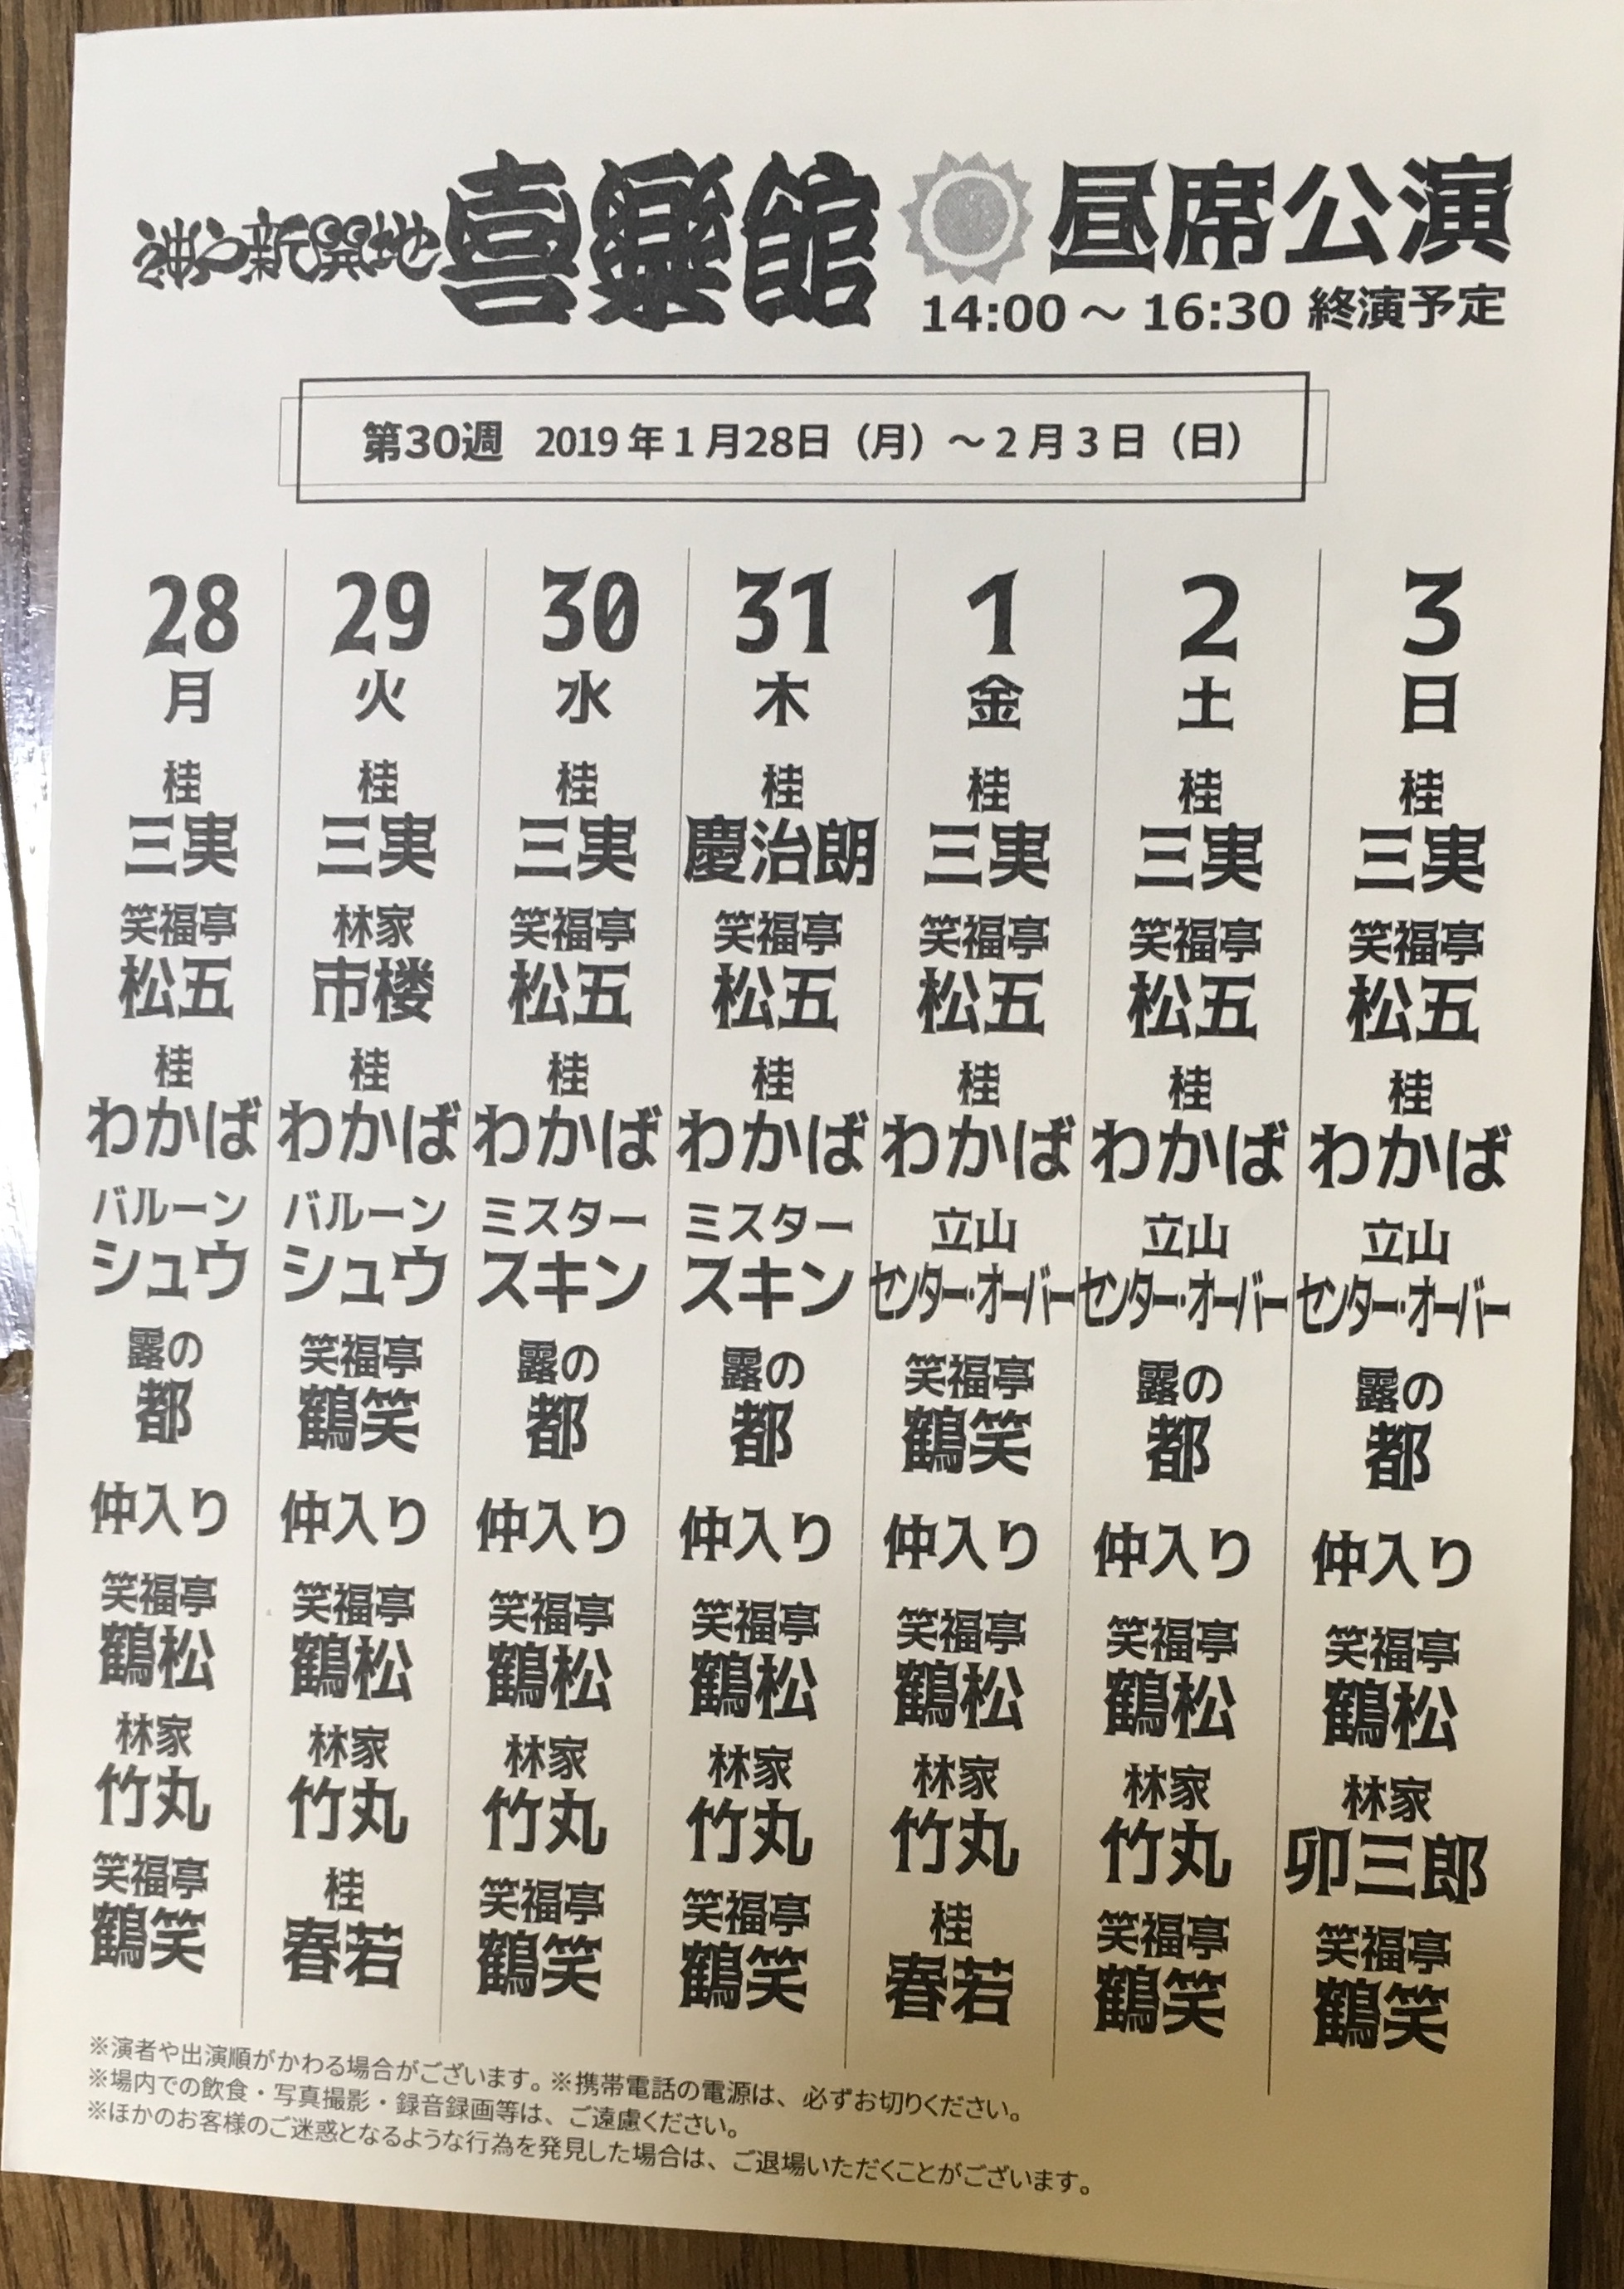 神戸新開地 喜楽館 昼席公演
14:00～16:30 終演予定
第30週 2019年1月28日（月）～2月3日（日）
28 29 30 31 1 2 3
月 火 水 木 金 土 日
桂 桂 桂 桂 桂 桂 桂
三実 三実 三実 慶治朗 三実 三実 三実
笑福亭 林家 笑福亭 笑福亭 笑福亭 笑福亭 笑福亭
松五 市楼 松五 松五 松五 松五 松五
桂 桂 桂 桂 桂 桂 桂
わかば わかば わかば わかば わかば わかば わかば
バルーン バルーン ミスター ミスター 立山 立山 立山
シュウ シュウ スキン スキン センター・オーバー センター・オーバー センター・オーバー
露の 笑福亭 露の 露の 笑福亭 露の 露の
都 鶴笑 都 都 鶴笑 都 都
仲入り 仲入り 仲入り 仲入り 仲入り 仲入り 仲入り
笑福亭 笑福亭 笑福亭 笑福亭 笑福亭 笑福亭 笑福亭
鶴松 鶴松 鶴松 鶴松 鶴松 鶴松 鶴松
林家 林家 林家 林家 林家 林家 林家
竹丸 竹丸 竹丸 竹丸 竹丸 竹丸 卯三郎
笑福亭 桂 笑福亭 笑福亭 桂 笑福亭 笑福亭
鶴笑 春若 鶴笑 鶴笑 春若 鶴笑 鶴笑
※演者や出演順がかわる場合がございます。※携帯電話の電源は、必ずお切りください。
※場内での飲食・写真撮影・録音録画等は、ご遠慮ください。
※ほかのお客様のご迷惑となるような行為を発見した場合は、ご退場いただくことがございます。